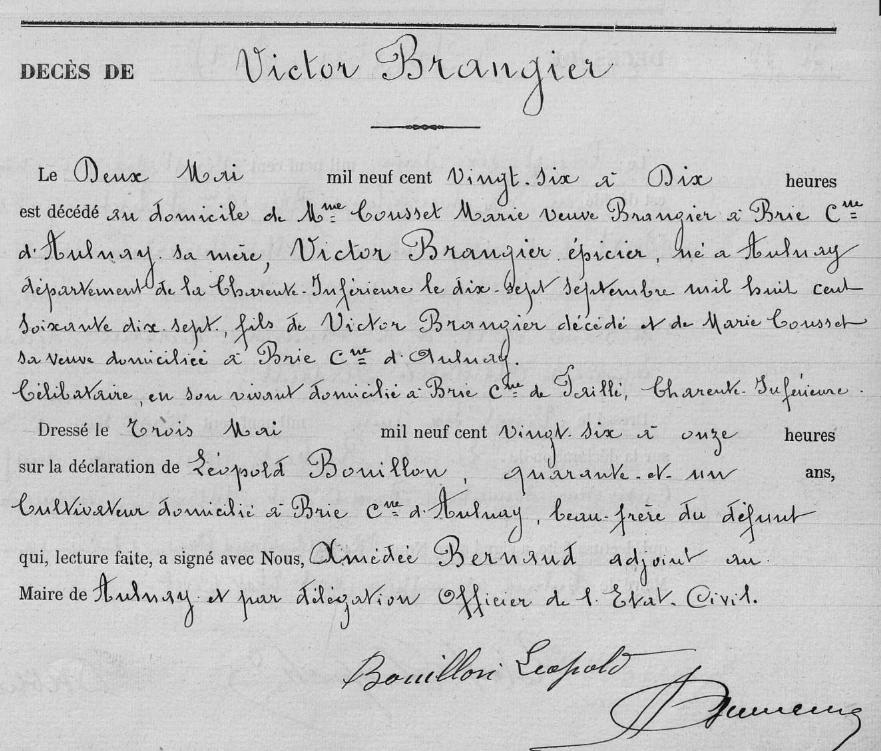 DECÈS DE Victor Brangier
Le Deux Mai mil neuf cent vingt-six à Dix heures
est décédé au domicile de Mme Cousset Marie veuve Brangier à Brie Cne
d'Aulnay sa mère, Victor Brangier, épicier, né à Aulnay
département de la Charente-Inférieure le dix-sept septembre mil huit cent
soixante dix-sept, fils de Victor Brangier décédé et de Marie Cousset
sa veuve domiciliée à Brie Cne d'Aulnay.
Célibataire, en son vivant domicilié à Brie Cne de Paillé, Charente-Inférieure.
Dressé le Trois Mai mil neuf cent vingt-six à onze heures
sur la déclaration de Léopold Bouillon, quarante-et-un ans,
Cultivateur domicilié à Brie Cne d'Aulnay, beau-frère du défunt
qui, lecture faite, a signé avec Nous, Amédée Bernard adjoint au
Maire de Aulnay et par délégation Officier de l'Etat-Civil.
Bouillon Léopold